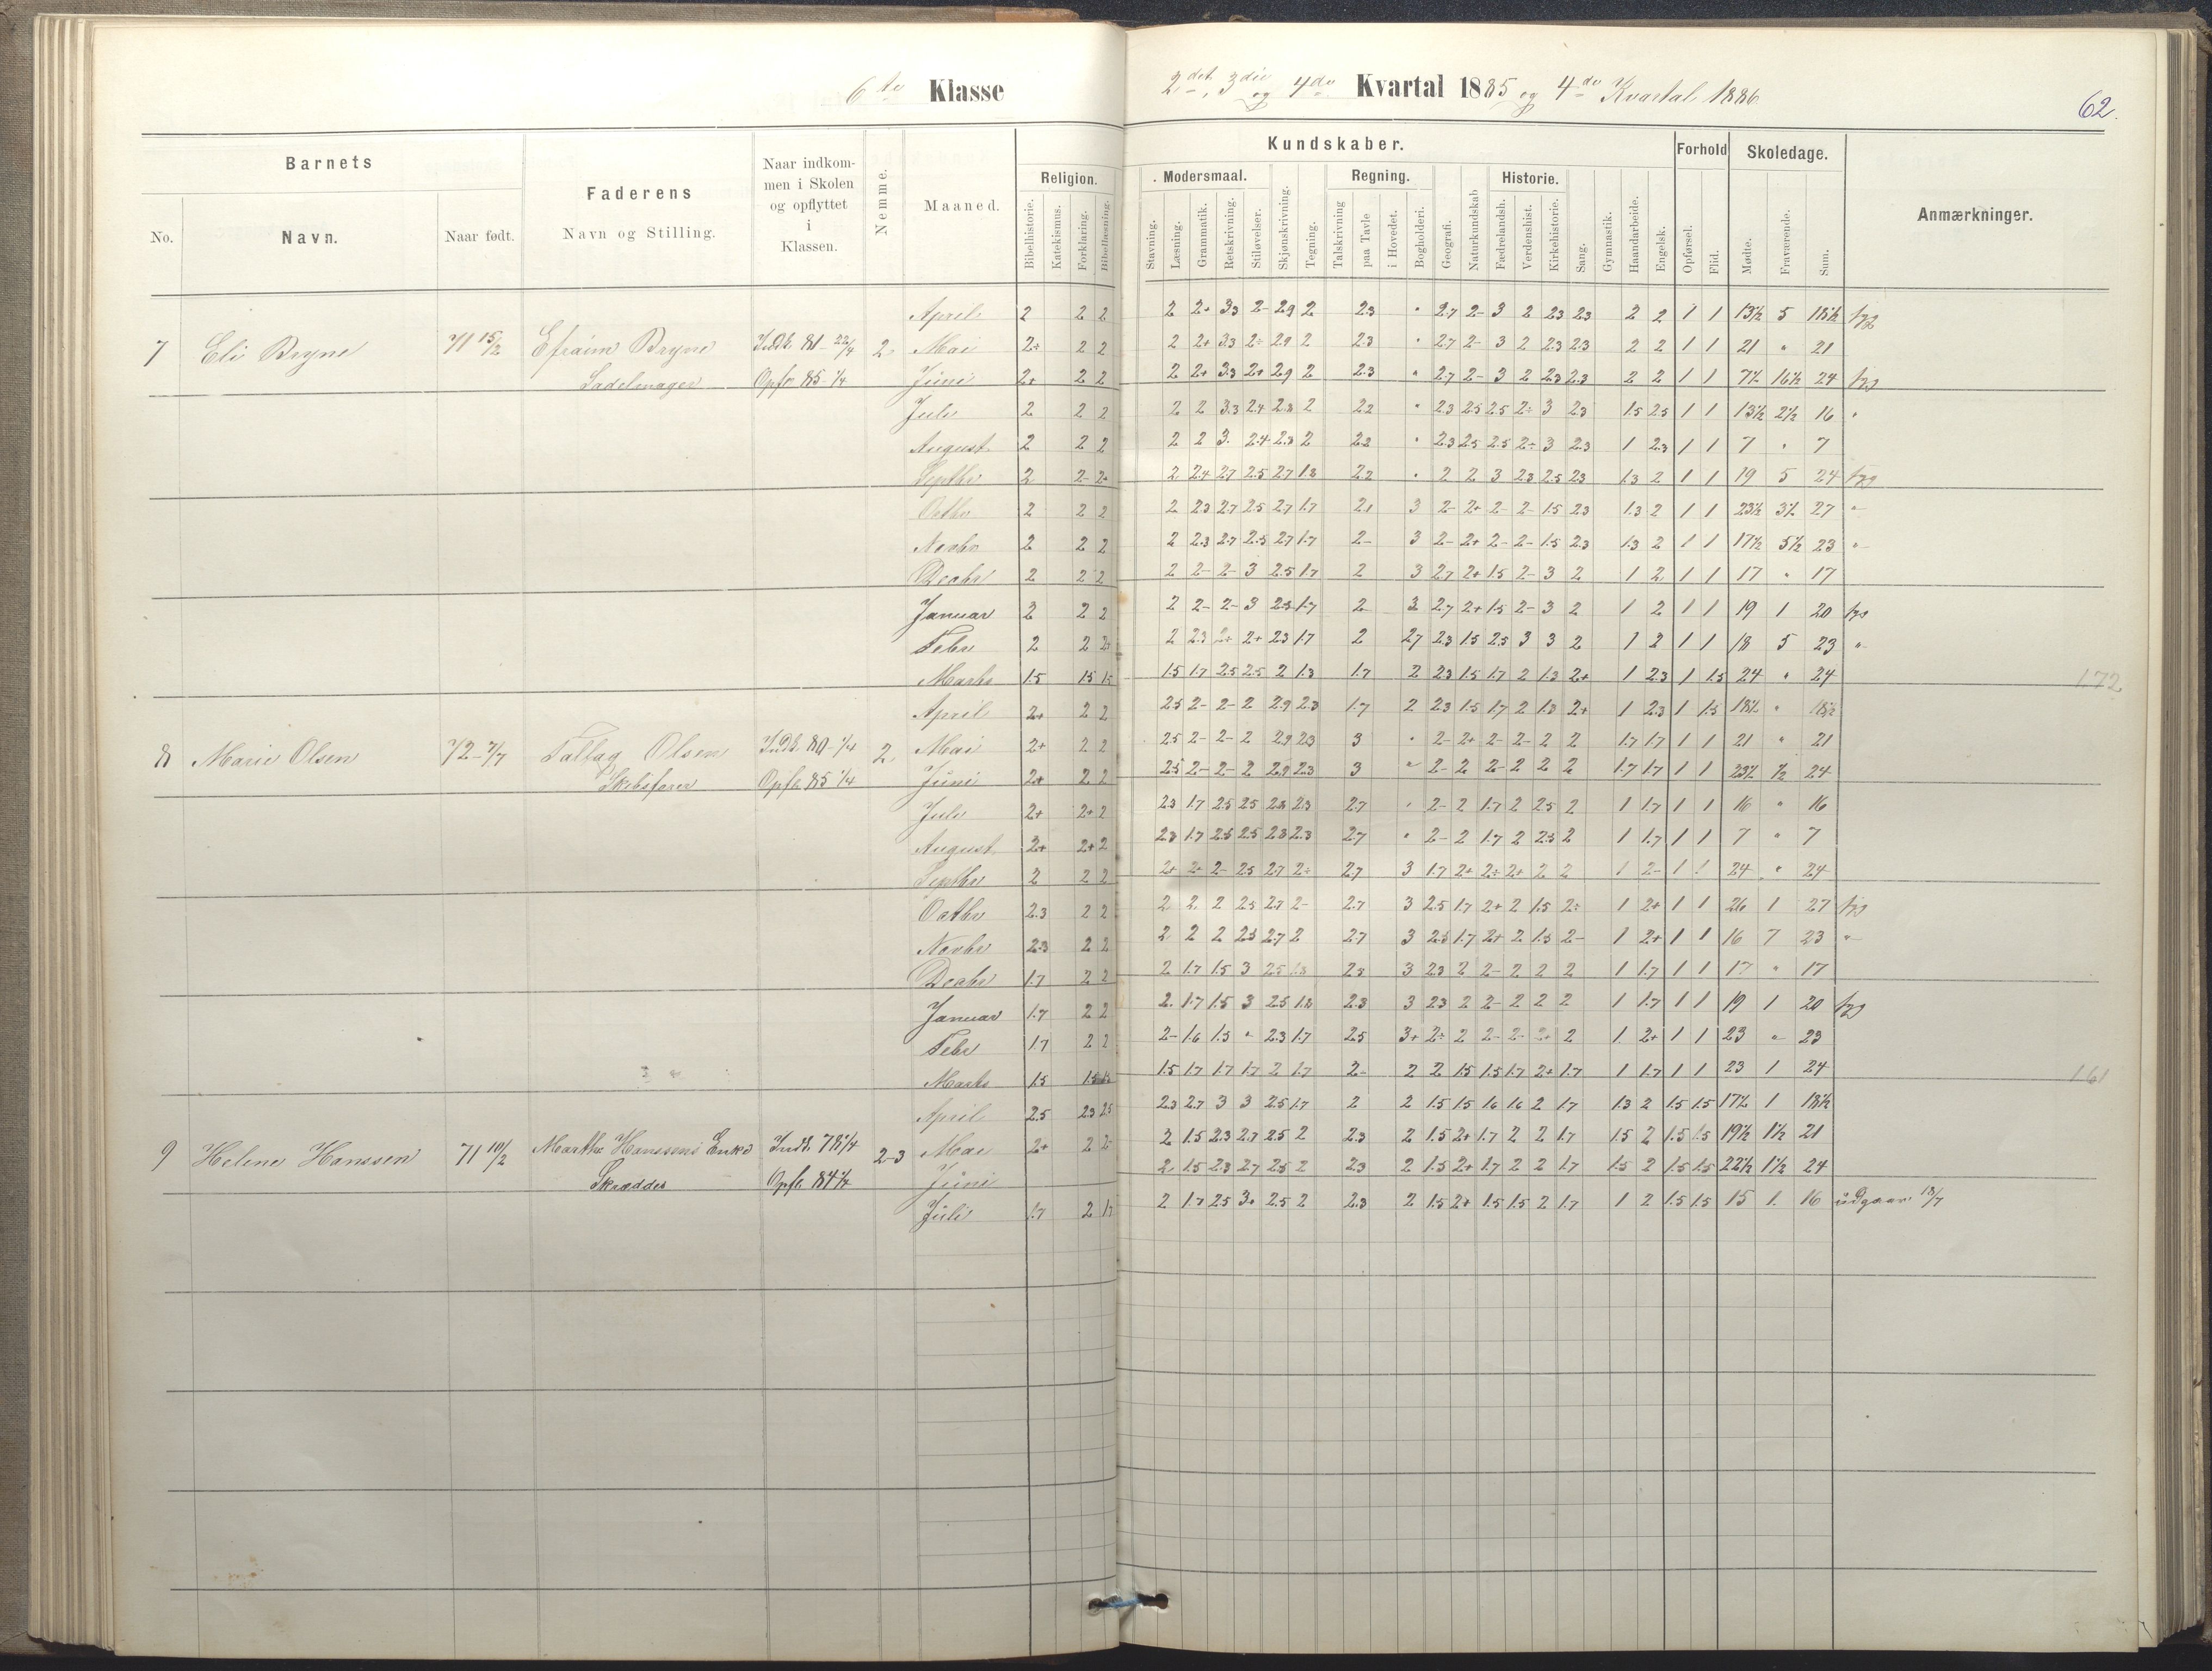 6te Klasse
2det, 3die og 4de Kvartal 1885 og 4de Kvartal 1886
62.
Barnets
Faderens
Naar indkommen i Skolen og opflyttet i Klassen.
Nemme.
Maaned.
Kundskaber.
Forhold
Skoledage.
Anmærkninger.
No.
Navn.
Naar født.
Navn og Stilling.
Religion.
Bibelhistorie.
Katekismus.
Forklaring.
Bibellæsning.
Modersmaal.
Stavning.
Læsning.
Grammatik.
Retskrivning.
Stiløvelser.
Skjønskrivning.
Tegning.
Regning.
Talskrivning
paa Tavle
i Hovedet.
Bogholderi.
Geografi.
Naturkundskab
Historie.
Fædrelandsh.
Verdenshist.
Kirkehistorie.
Sang.
Gymnastik.
Haandarbeide.
Engelsk.
Opførsel.
Flid.
Mødte.
Fraværende.
Sum.
April 2 2 2 2 2+ 3.3 2- 2.9 2 2.3 " 2.7 2- 3 2 2.3 2.3 2 2 1 1 13½ 5 18½ syg
7 Eli Bryne 71 15/2 Efraim Bryne Indk. 81 22/4 2 Mai 2÷ 2 2 2 2+ 3.3 2÷ 2.9 2 2.3 " 2.7 2- 3 2 2.3 2.3 2 2 1 1 21 " 21
Sadelmager Opfr 85 1/4 Juni 2+ 2 2 2 2+ 3.3 2+ 2.9 2 2.3 " 2.7 2- 3 2 2.3 2.3 2 2 1 1 7½ 16½ 24 syg
Juli 2 2 2 2 2 3.3 2.4 2.8 2 2.2 " 2.3 2.5 2.5 2÷ 3 2.3 1.5 2.5 1 1 13½ 2½ 16 "
August 2 2 2 2 2 3. 2.4 2.3 2 2.2 " 2.3 2.5 2.5 2÷ 3 2.3 1 2.3 1 1 7 " 7
Septbr 2 2- 2+ 2 2.4 2.7 2.5 2.7 1.8 2.2 " 2 2 3 2.3 2.5 2.3 1.3 2 1 1 19 5 24 syg
Octbr 2 2 2 2 2.3 2.7 2.5 2.7 1.7 2.1 3 2- 2+ 2- 2- 1.5 2.3 1.3 2 1 1 23½ 3½ 27 "
Novbr 2 2 2 2 2.3 2.7 2.5 2.7 1.7 2- 3 2- 2+ 2- 2- 1.5 2.3 1.3 2 1 1 17½ 5½ 23 "
Decbr 2 2 2 2 2- 2- 3 2.5 1.7 2 3 2.7 2+ 1.5 2- 3 2 1 2 1 1 17 " 17
Januar 2 2 2 2 2- 2- 3 2.5 1.7 2 3 2.7 2+ 1.5 2- 3 2 1 2 1 1 19 1 20 syg
Febr 2 2 2 2 2.3 2+ 2+ 2.3 1.7 2 2.7 2.3 1.5 2.5 3 3 2 1 2 1 1 18 5 23 "
Marts 1.5 1.5 1.5 1.5 1.7 2.5 2.5 2 1.3 1.7 2 2.3 1.5 1.7 2 1.3 2+ 1 2.3 1 1.5 24 " 24 172
April 2+ 2 2 2.5 2- 2- 2 2.9 2.3 1.7 2 2.3 1.5 1.7 2 1.3 2+ 1 2.3 1 1.5 18½ " 18½
8 Marie Olsen 72 7/7 Olsen Indk. 80 1/4 2 Mai 2+ 2 2 2.5 2- 2- 2 2.9 2.3 3 " 2- 2+ 2- 2- 2 2 1.7 1.7 1 1 21 " 21
Skibsfører Opfl. 85 1/4 Juni 2+ 2 2 2.5 2- 2- 2 2.9 2.3 3 " 2- 2 2- 2 2 2 1.7 1.7 1 1 23½ ½ 24
Juli 2+ 2+ 2 2.3 1.7 2.5 2.5 2.8 2.3 2.7 " 2- 2 1.7 2 2.5 2 1 1.7 1 1 16 " 16
August 2+ 2+ 2 2.3 1.7 2.5 2.5 2.8 2.3 2.7 " 2- 2 1.7 2 2.5 2 1 1.7 1 1 7 " 7
Septbr 2 2 2 2+ 2+ 2- 2.5 2.7 2÷ 2.7 3 1.7 2+ 2÷ 2+ 2 2 1 2- 1 1 24 " 24
Octbr 2.3 2 2 2 2 2 2.5 2.7 2- 2.7 3 2.5 1.7 2+ 2 1.5 2÷ 1 2+ 1 1 26 1 27 syg
Novbr 2.3 2 2 2 2 2 2.5 2.7 2 2.7 3 2.5 1.7 2+ 2 1.5 2- 1 2+ 1 1 16 7 23 "
Decbr 1.7 2 2 2 1.7 1.5 3 2.5 1.8 2.3 3 2.3 2 2- 2 2 2 1 1.7 1 1 17 " 17
Januar 1.7 2 2 2. 1.7 1.5 3 2.5 1.8 2.3 3 2.3 2 2- 2 2 2 1 1.7 1 1 19 1 20 syg
Febr 1.7 2 2 2- 1.6 1.5 " 2.3 1.7 2.5 3+ 2÷ 2 2- 2- 2+ 2 1 2+ 1 1 23 " 23
Marts 1.5 1.5 1.5 1.7 1.7 1.7 2 1.7 2- 2 2 1.5 1.5 1.7 2+ 1.7 1 1.7 1 1 23 1 24 161
April 2.5 2.3 2.5 2.3 2.7 3 3 2.5 1.7 2 2 1.5 1.5 1.6 1.6 2 1.7 1.3 2 1.5 1.5 17½ 1 18½
9 Helene Hanssen 71 10/2 Marthe Hanssens Enke Indk. 78 1/4 2-3 Mai 2+ 2 2- 2 1.5 2.3 2.7 2.5 2 2.3 2 1.5 2+ 1.7 2 2 1.7 1.5 2 1.5 1.5 19½ 1½ 21
Skrædder Opfl. 84 1/4 Juni 2 1.5 2.3 2.7 2.5 2 2.3 2 1.5 2+ 1.7 2 2 1.7 1.5 2 1.5 1.5 22½ 1½ 24
Juli 1.7 2 1.7 2 1.7 2.5 3+ 2.5 2 2.3 2 1.5 2+ 1.5 1.5 2 1.7 1 2 1.5 1.5 15 1. 16 udgaar 18/7